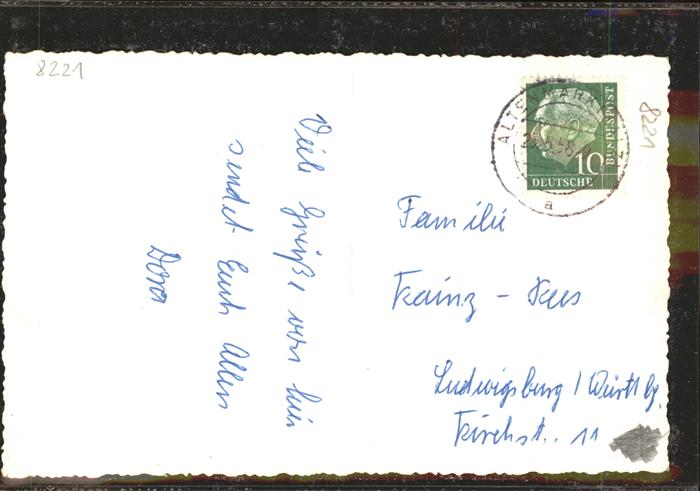 8221
Viele Grüße von hier
sendet Euch Allen
Dora
ALTENMARKT
a
10
DEUTSCHE
BUNDESPOST
8221
Familie
Kainz - Kus
Ludwigsburg / Württbg.
Kirchst.. 11